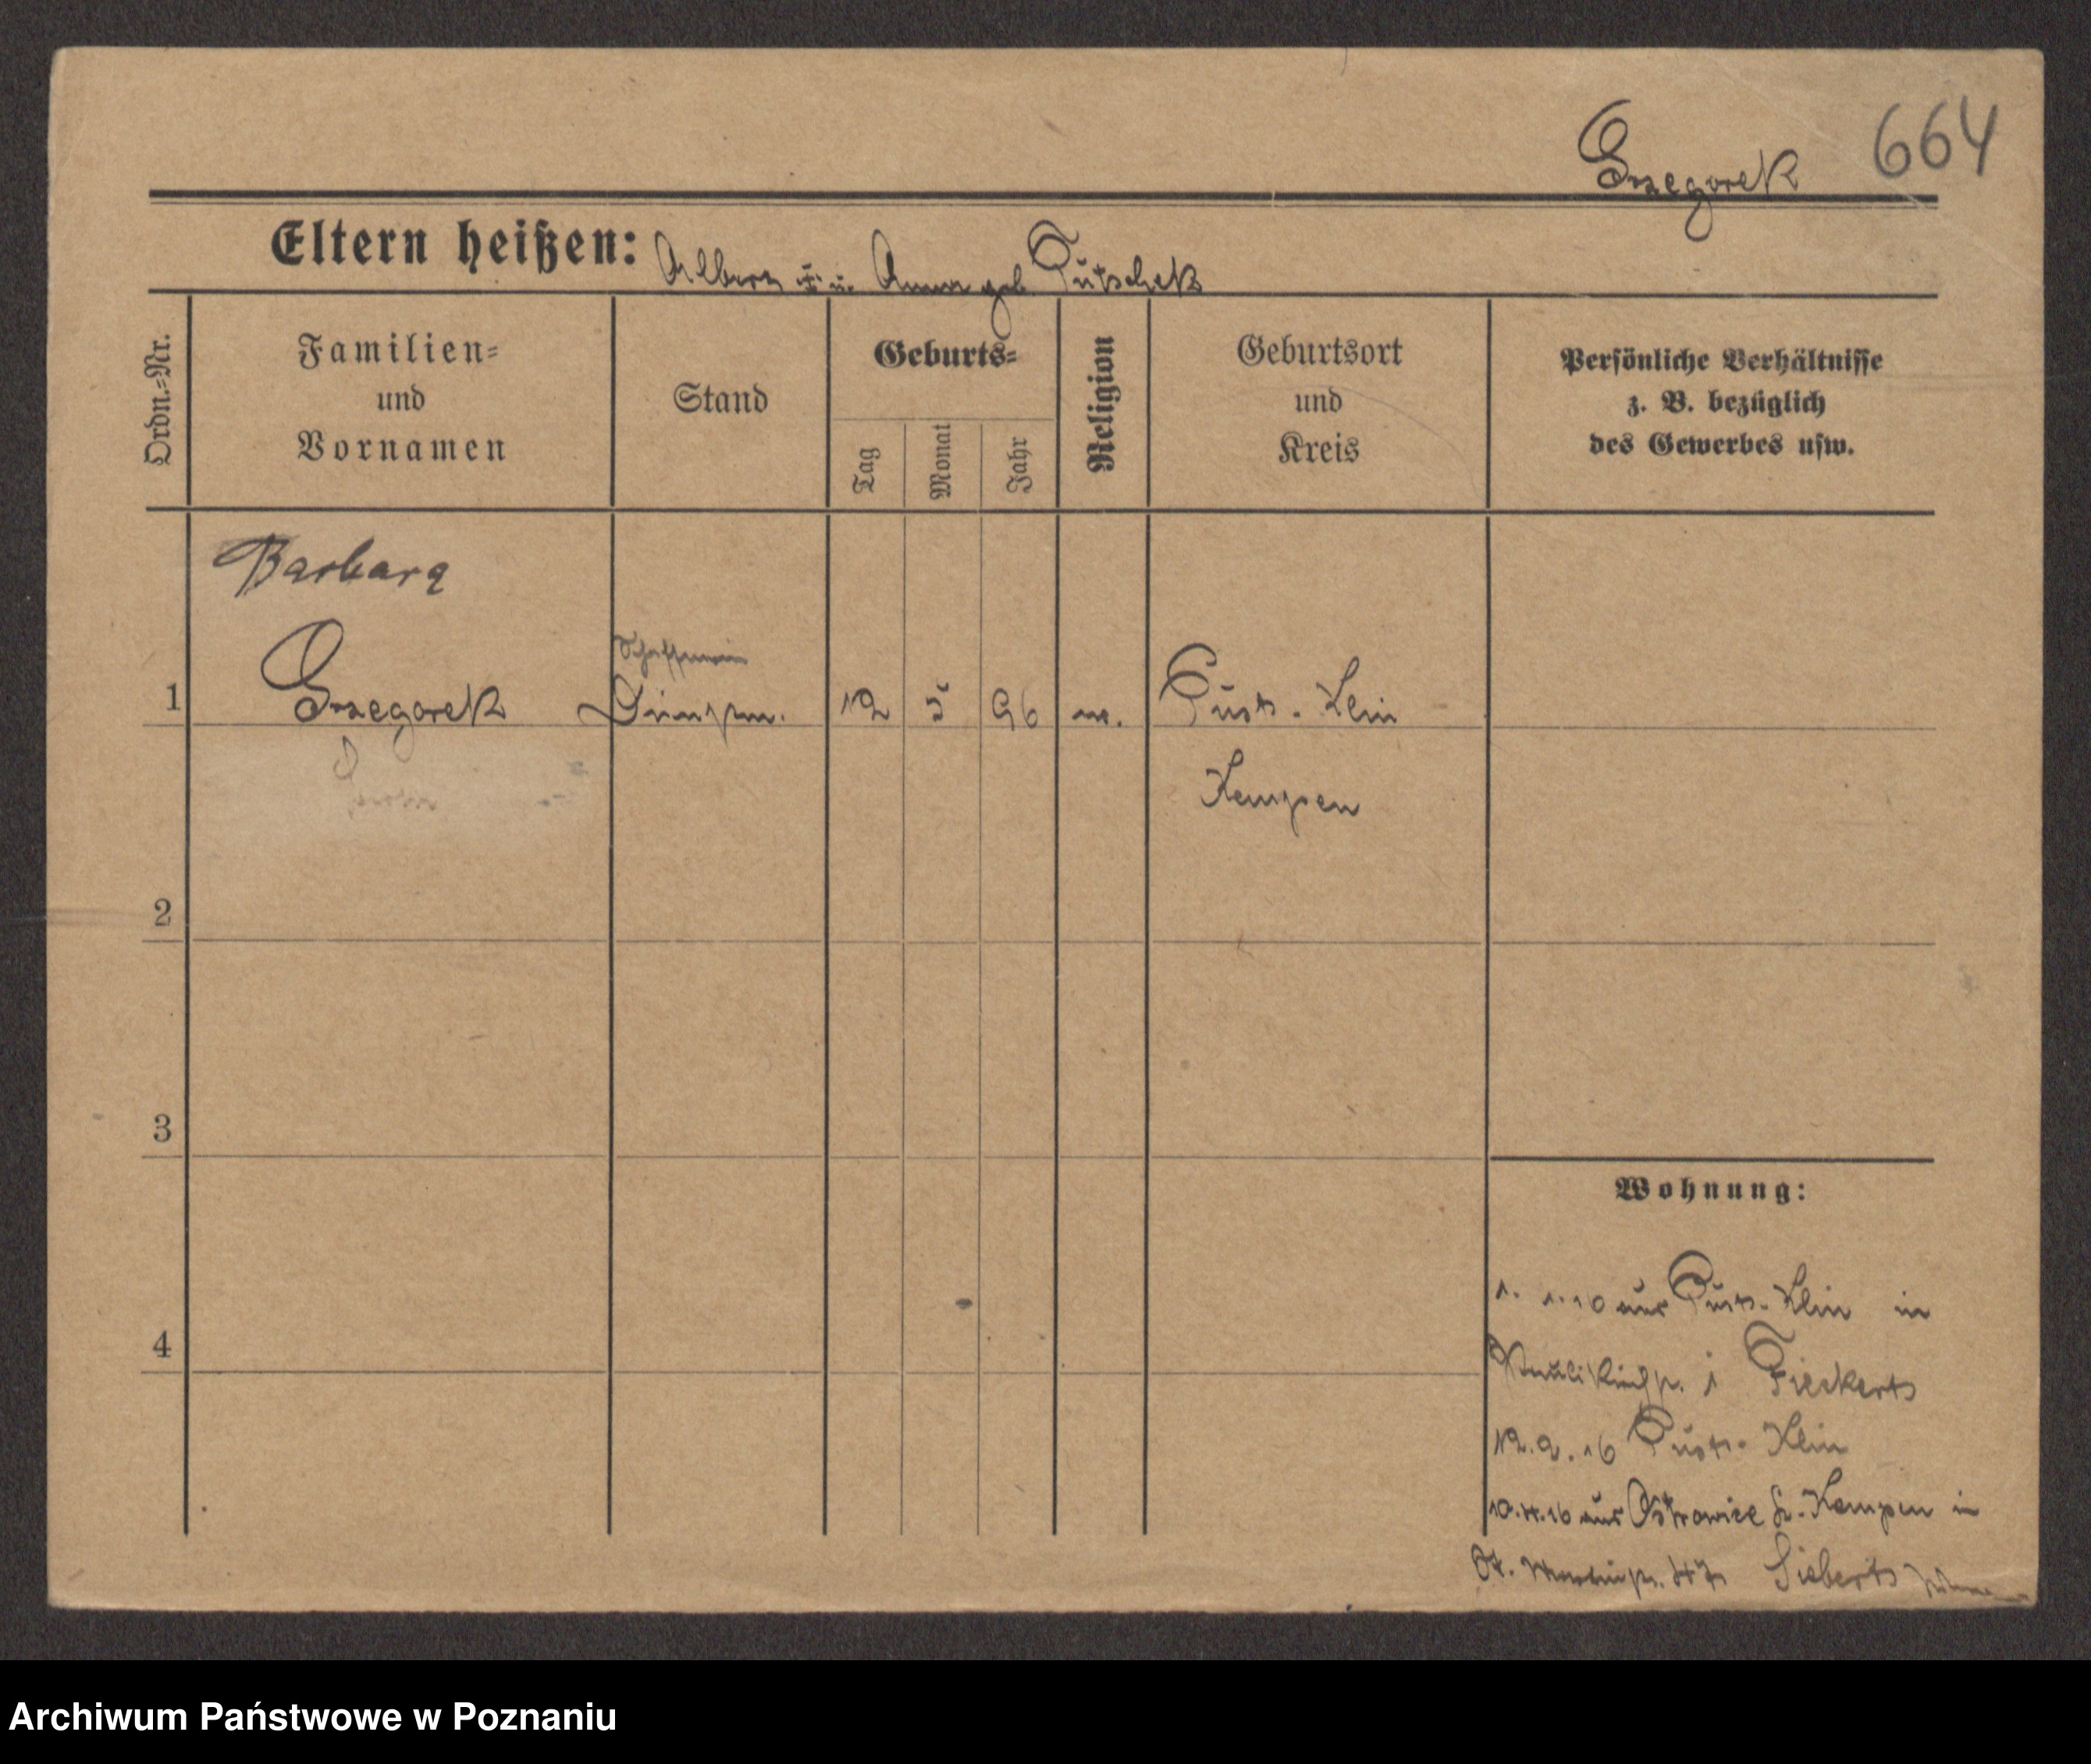 Grzegorek 664
Eltern heißen: Albert u. Anna geb. Putschek
Ordn.=Nr.
Familien=
und
Vornamen
Stand
Geburts=
Tag
Monat
Jahr
Religion
Geburtsort
und
Kreis
Persönliche Verhältnisse
z. B. bezüglich
des Gewerbes usw.
Barbara
Schaffnerin
1 Grzegorek 12 5 96 Pust. - Klein
Kempen
2
3
4
Wohnung:
1. 1.10 aus Pust. - Klein in
Paulikirchstr. 1 Fieckerts
12.2.16 Pust. - Klein
10.4.16 aus Ostrowice Kr. Kempen in
St. Martinstr. 47 Sieberts
Archiwum Państwowe w Poznaniu